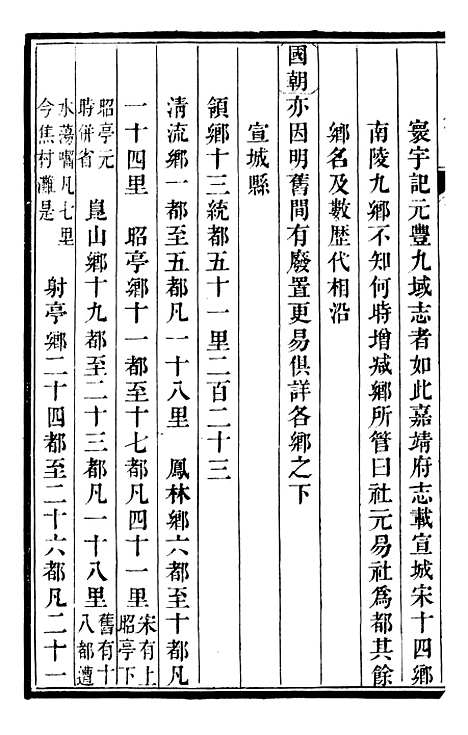 寰宇記元豐九域志者如此嘉靖府志載宣城宋十四鄉
南陵九鄉不知何時增減鄉所管曰社元易社爲都其餘
鄉名及數歷代相沿
國朝亦因明舊間有廢置更易俱詳各鄉之下
宣城縣
領鄉十三統都五十一里二百二十三
淸流鄉一都至五都凡一十八里　鳳林鄉六都至十都凡
一十四里　昭亭鄉十一都至十七都凡四十一里宋有上昭亭下
昭亭元時併省　崑山鄉十九都至二十三都凡一十八里舊有十八都遭
水蕩囓凡七里今焦村灘是　射亭鄉二十四都至二十六都凡二十一